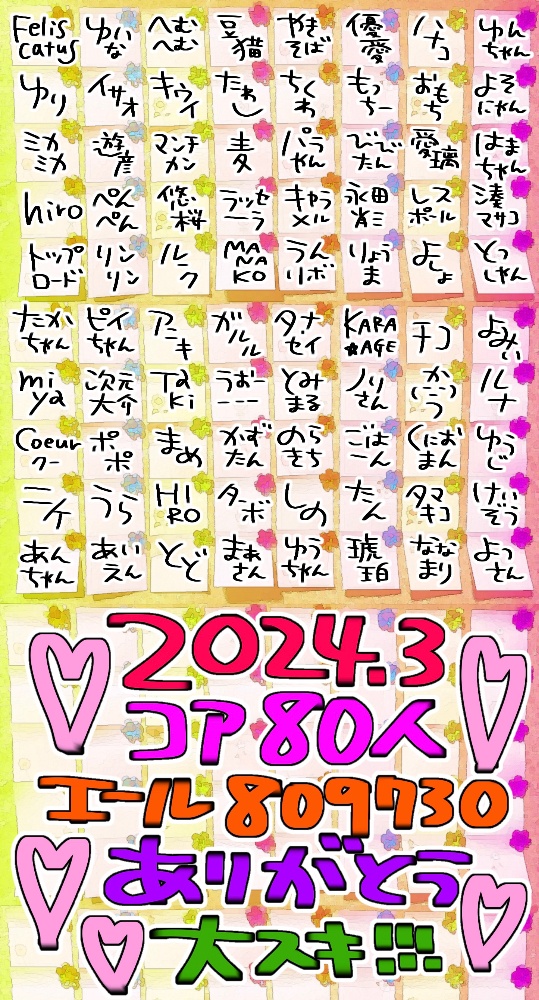 Felis Catus ゆいな へむへむ 豆猫 やきそば 優愛 ハチコ ゆんちゃん
ゆり イサオ キウイ たわし ちくわ もっちー おもち よそにゃん
ミカミカ 遊彦 マンチカン 麦 パラやん びびでたん 愛璃 はまちゃん
hiro ぺんぺん 悠桜 ラッセーラ キャラメル 永田 レスポール 湊マサコ
トップロード リンリン ルーク MANAKO うんリボ りょうま よしょ とっしゃん
たかちゃん ピイちゃん アニキ ガルル タナセイ KARA☆AGE チコ よみぃ
miya 次元大介 Taki うおーーーー とみまる ノリさん かつう ルナ
Coeurクー ポポ まめ かずたん のらきち ごはーん くにおまん ゆうじ
ニケ うら HIRO ターボ しの たん タマキコ けいぞう
あんちゃん あいえん とど まぁさん ゆうちゃん 琥珀 ななまり よっさん
2024.3
コア80人
エール809730
ありがとう
大スキ!!!